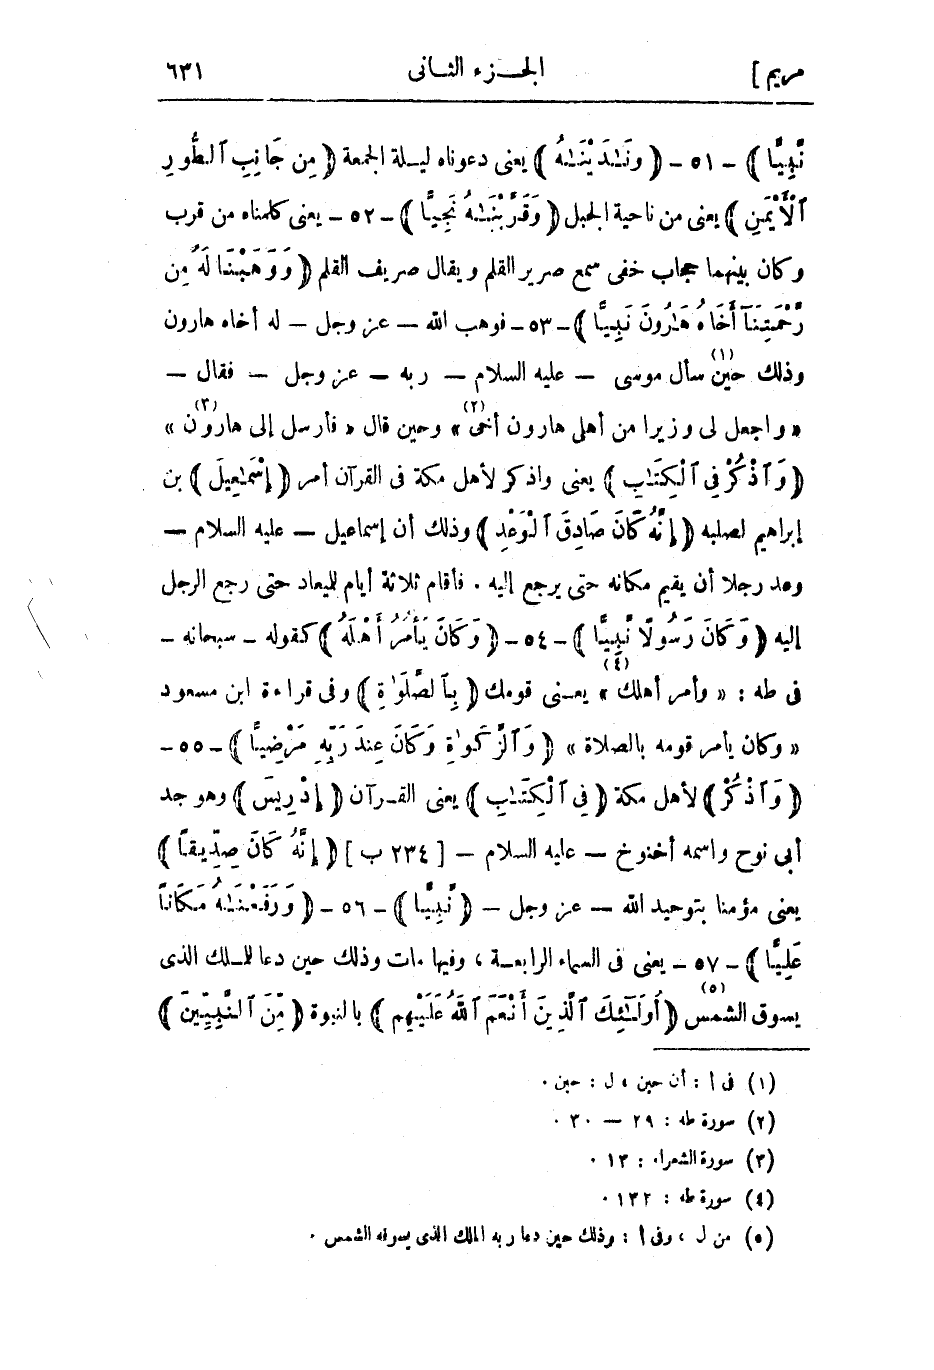 مريم ] الجـزء الثـانى ٦٣١
نَّبِيًّا ﴾ - ٥١ - ﴿ وَنَـٰدَيْنَـٰهُ ﴾ يعنى دعوناه ليـلة الجمعة ﴿ مِن جَانِبِ ٱلطُّورِ
ٱلْأَيْمَنِ ﴾ يعنى من ناحية الجبل ﴿ وَقَرَّبْنَـٰهُ نَجِيًّا ﴾ - ٥٢ - يعنى كلمناه من قرب
وكان بينهما حجاب خفى سمع صرير القلم ويقال صريف القلم ﴿ وَوَهَبْنَا لَهُ مِن
رَّحْمَتِنَآ أَخَاهُ هَـٰرُونَ نَبِيًّا ﴾ - ٥٣ - فوهب الله — عز وجل — له أخاه هارون
وذلك حين (١) سأل موسى — عليه السلام — ربه — عز وجل — فقال —
« واجعل لى وزيرا من أهلى هارون أخى (٢) » وحين قال « فأرسل إلى هارون (٣) »
﴿ وَٱذْكُرْ فِى ٱلْكِتَـٰبِ ﴾ يعنى واذكر لأهل مكة فى القرآن أمر ﴿ إِسْمَـٰعِيلَ ﴾ بن
إبراهيم لصلبه ﴿ إِنَّهُ كَانَ صَادِقَ ٱلْوَعْدِ ﴾ وذلك أن إسماعيل — عليه السلام —
وعد رجلا أن يقيم مكانه حتى يرجع إليه . فأقام ثلاثة أيام للميعاد حتى رجع الرجل
إليه ﴿ وَكَانَ رَسُولًا نَّبِيًّا ﴾ - ٥٤ - ﴿ وَكَانَ يَأْمُرُ أَهْلَهُ ﴾ كقوله - سبحانه -
فى طه : « وأمر أهلك (٤) » يعـنى قومك ﴿ بِٱلصَّلَوٰةِ ﴾ وفى قراءة ابن مسعود
« وكان يأمر قومه بالصلاة » ﴿ وَٱلزَّكَوٰةِ وَكَانَ عِندَ رَبِّهِ مَرْضِيًّا ﴾ - ٥٥ -
﴿ وَٱذْكُرْ ﴾ لأهل مكة ﴿ فِى ٱلْكِتَـٰبِ ﴾ يعنى القـرآن ﴿ إِدْرِيسَ ﴾ وهو جد
أبى نوح واسمه أخنوخ — عليه السلام — [ ٢٣٤ ب ] ﴿ إِنَّهُ كَانَ صِدِّيقًا ﴾
يعنى مؤمنا بتوحيد الله — عز وجل — ﴿ نَّبِيًّا ﴾ - ٥٦ - ﴿ وَرَفَعْنَـٰهُ مَكَانًا
عَلِيًّا ﴾ - ٥٧ - يعنى فى السماء الرابعـة ، وفيها مات وذلك حين دعا للملك الذى
يسوق الشمس (٥) ﴿ أُولَـٰٓئِكَ ٱلَّذِينَ أَنْعَمَ ٱللَّهُ عَلَيْهِم ﴾ بالنبوة ﴿ مِّنَ ٱلنَّبِيِّينَ ﴾
(١) فى أ : أن حين ، ل : حين .
(٢) سورة طه : ٢٩ — ٣٠ .
(٣) سورة الشعراء : ١٣ .
(٤) سورة طه : ١٣٢ .
(٥) من ل ، وفى أ : وذلك حين دعا ربه الملك الذى يسوقه الشمس .